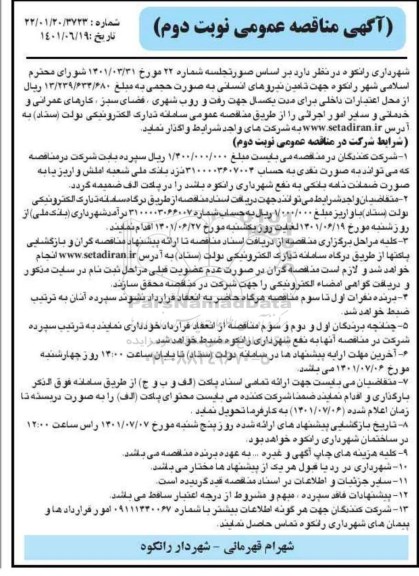 (آگهی مناقصه عمومی نوبت دوم)
شماره : ۲۲/۰۱/۲۰/۳۷۲۳
تاریخ: ۱۴۰۱/۰۶/۱۹
شهرداری رانکوه در نظر دارد بر اساس صورتجلسه شماره ۲۲ مورخ ۱۴۰۱/۰۳/۳۱ شورای محترم
اسلامی شهر رانکوه جهت تامین نیروهای انسانی به صورت حجمی به مبلغ ۱۳/۲۳۹/۶۳۴/۶۸۰ ریال
از محل اعتبارات داخلی برای مدت یکسال جهت رفت و روب شهری ، فضای سبز ، کارهای عمرانی و
خدماتی و سایر امور اجرائی را از طریق مناقصه عمومی سامانه تدارک الکترونیکی دولت (ستاد) به
آدرس www.setadiran.ir به شرکت های واجد شرایط واگذار نماید.
(شرایط شرکت در مناقصه عمومی نوبت دوم)
۱-شرکت کنندگان در مناقصه می بایست مبلغ ۱/۴۰۰/۰۰۰/۰۰۰ ریال سپرده بابت شرکت در مناقصه
که می تواند به صورت نقدی به حساب ۳۱۰۰۰۰۳۶۰۷۰۰۴ نزد بانک ملی شعبه املش واریز یا به
صورت ضمانت نامه بانکی به نفع شهرداری رانکوه باشد را در پاکت الف ضمیمه گردد.
۲-متقاضیان واجد شرایط می توانند جهت دریافت اسناد مناقصه از طریق درگاه سامانه تدارک الکترونیکی
دولت (ستاد) با واریز مبلغ ۱/۰۰۰/۰۰۰ ریال به حساب شماره ۳۱۰۰۰۰۳۰۶۶۰۰۷ درآمد شهرداری (بانک ملی) از
روز شنبه مورخ ۱۴۰۱/۰۶/۱۹ لغایت روز یکشنبه مورخ ۱۴۰۱/۰۶/۲۷ اقدام نمایند.
۳-کلیه مراحل برگزاری مناقصه از دریافت اسناد مناقصه تا ارائه پیشنهاد مناقصه گران و بازگشایی
پاکتها از طریق درگاه سامانه تدارک الکترونیکی دولت (ستاد) به آدرس www.setadiran.ir انجام
خواهد شد و لازم است مناقصه گران در صورت عدم عضویت قبلی مراحل ثبت نام در سایت مذکور
و دریافت گواهی امضاء الکترونیکی را جهت شرکت در مناقصه محقق سازند.
۴-برنده نفرات اول تا سوم مناقصه هرگاه حاضر به انعقاد قرارداد نشوند سپرده آنان به ترتیب
ضبط خواهد شد.
۵-چنانچه برندگان اول و دوم و سوم مناقصه از انعقاد قرارداد خودداری نمایند به ترتیب سپرده
شرکت در مناقصه آنها به نفع شهرداری رانکوه ضبط خواهد شد.
۶-آخرین مهلت ارایه پیشنهاد ها در سامانه دولت (ستاد) تا پایان ساعت ۱۴:۰۰ روز چهارشنبه
مورخ ۱۴۰۱/۰۷/۰۶ می باشد.
۷-متقاضیان می بایست جهت ارائه تمامی اسناد پاکت (الف و ب و ج) از طریق سامانه فوق الذکر
بارگذاری و اقدام نمایند ضمنا شرکت کننده می بایست محتوای پاکت (الف) را به صورت دربسته تا
زمان اعلام شده (۱۴۰۱/۰۷/۰۶) به کارفرما تحویل نماید .
۸-تاریخ بازگشایی پیشنهاد های ارائه شده روز پنج شنبه مورخ ۱۴۰۱/۰۷/۰۷ راس ساعت ۱۲:۰۰
در ساختمان شهرداری رانکوه خواهد بود.
۹-کلیه هزینه های چاپ آگهی و غیره ... به عهده برنده مناقصه می باشد.
۱۰-شهرداری در رد یا قبول هر یک از پیشنهاد ها مختار می باشد.
۱۱-سایر جزئیات و اطلاعات در اسناد مناقصه قید گردیده است.
۱۲-پیشنهادات فاقد سپرده ، مبهم و مشروط از درجه اعتبار ساقط می باشد.
۱۳-شرکت کنندگان جهت هر گونه اطلاعات بیشتر با شماره ۰۹۱۱۱۴۴۰۰۶۷ امور قرارداد ها و
پیمان های شهرداری رانکوه تماس حاصل نمایند.
شهرام قهرمانی - شهردار رانکوه